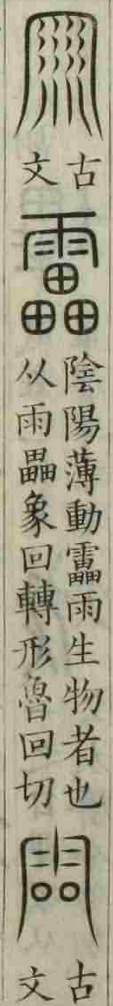 古
文
靁
陰陽薄動靁雨生物者也
从雨畾象回轉形魯回切
古
文